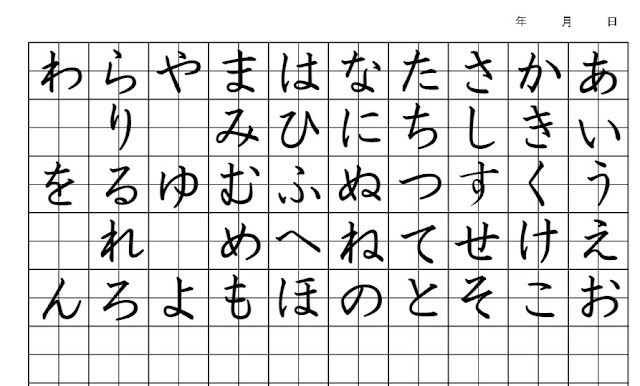 年 月 日
あいうえお
かきくけこ
さしすせそ
たちつてと
なにぬねの
はひふへほ
まみむめも
やゆよ
らりるれろ
わをん